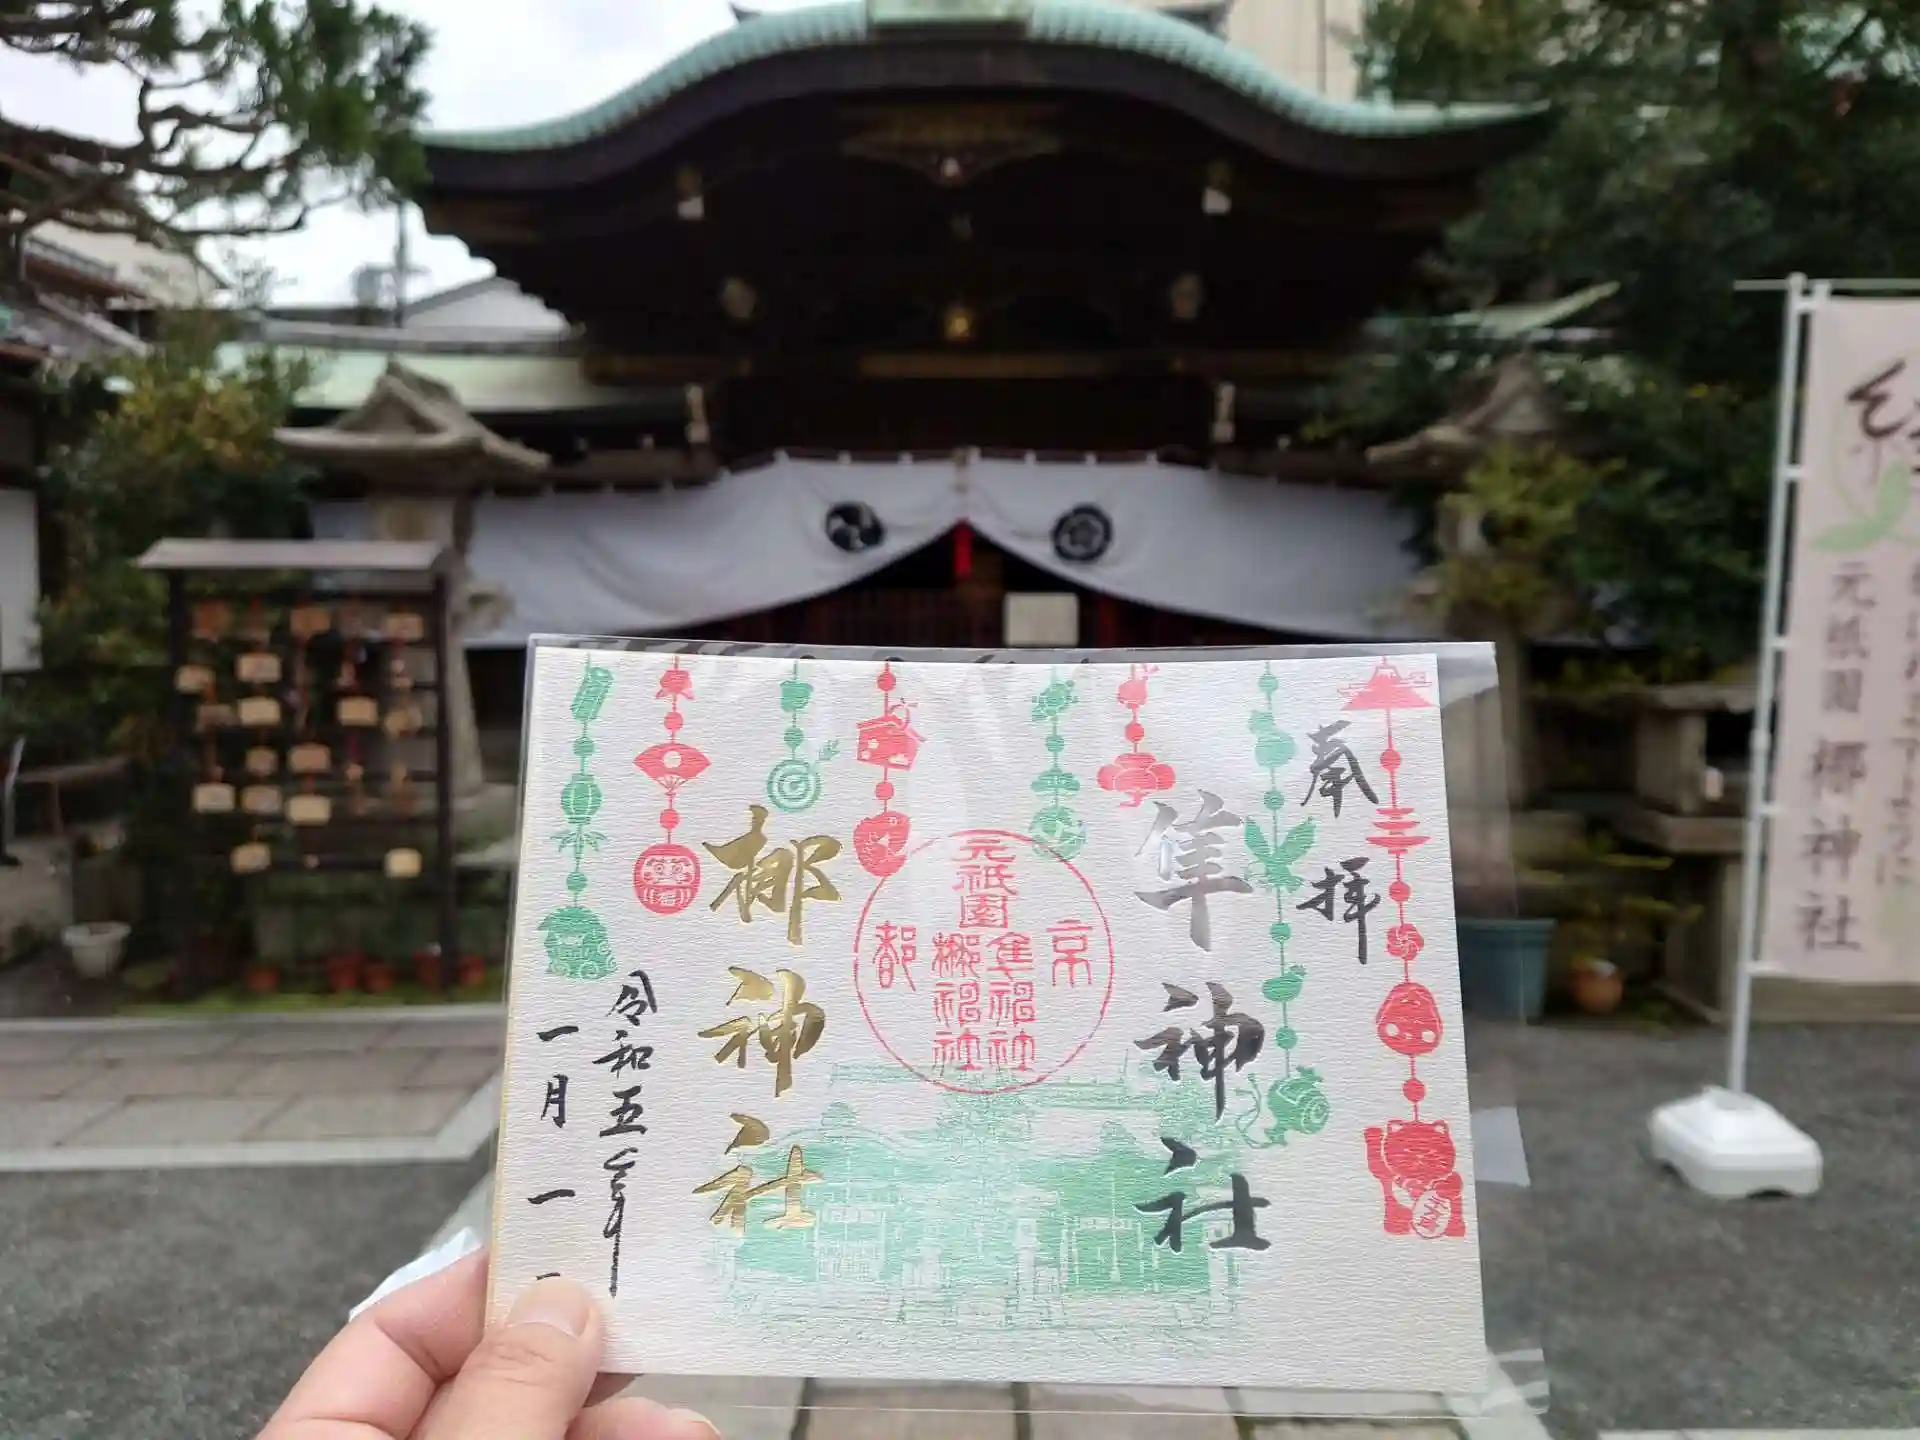 奉拝
隼神社
京都
元祇園
隼神社
梛神社
梛神社
令和五年
一月一
元祇園 梛神社